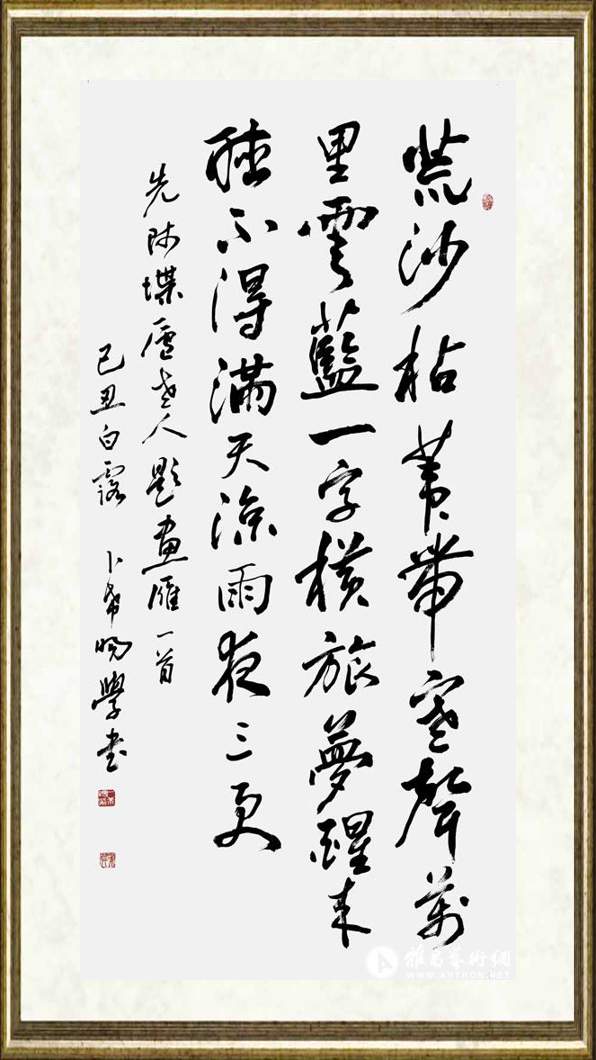 荒沙枯葦帶寒聲萬
里雲藍一字橫旅夢醒来
聽不得滿天涼雨夜三更
先師堞廬老人題畫雁一首
己丑白露 卜希暘學書
雅昌藝術網
WWW.ARTRON.NET